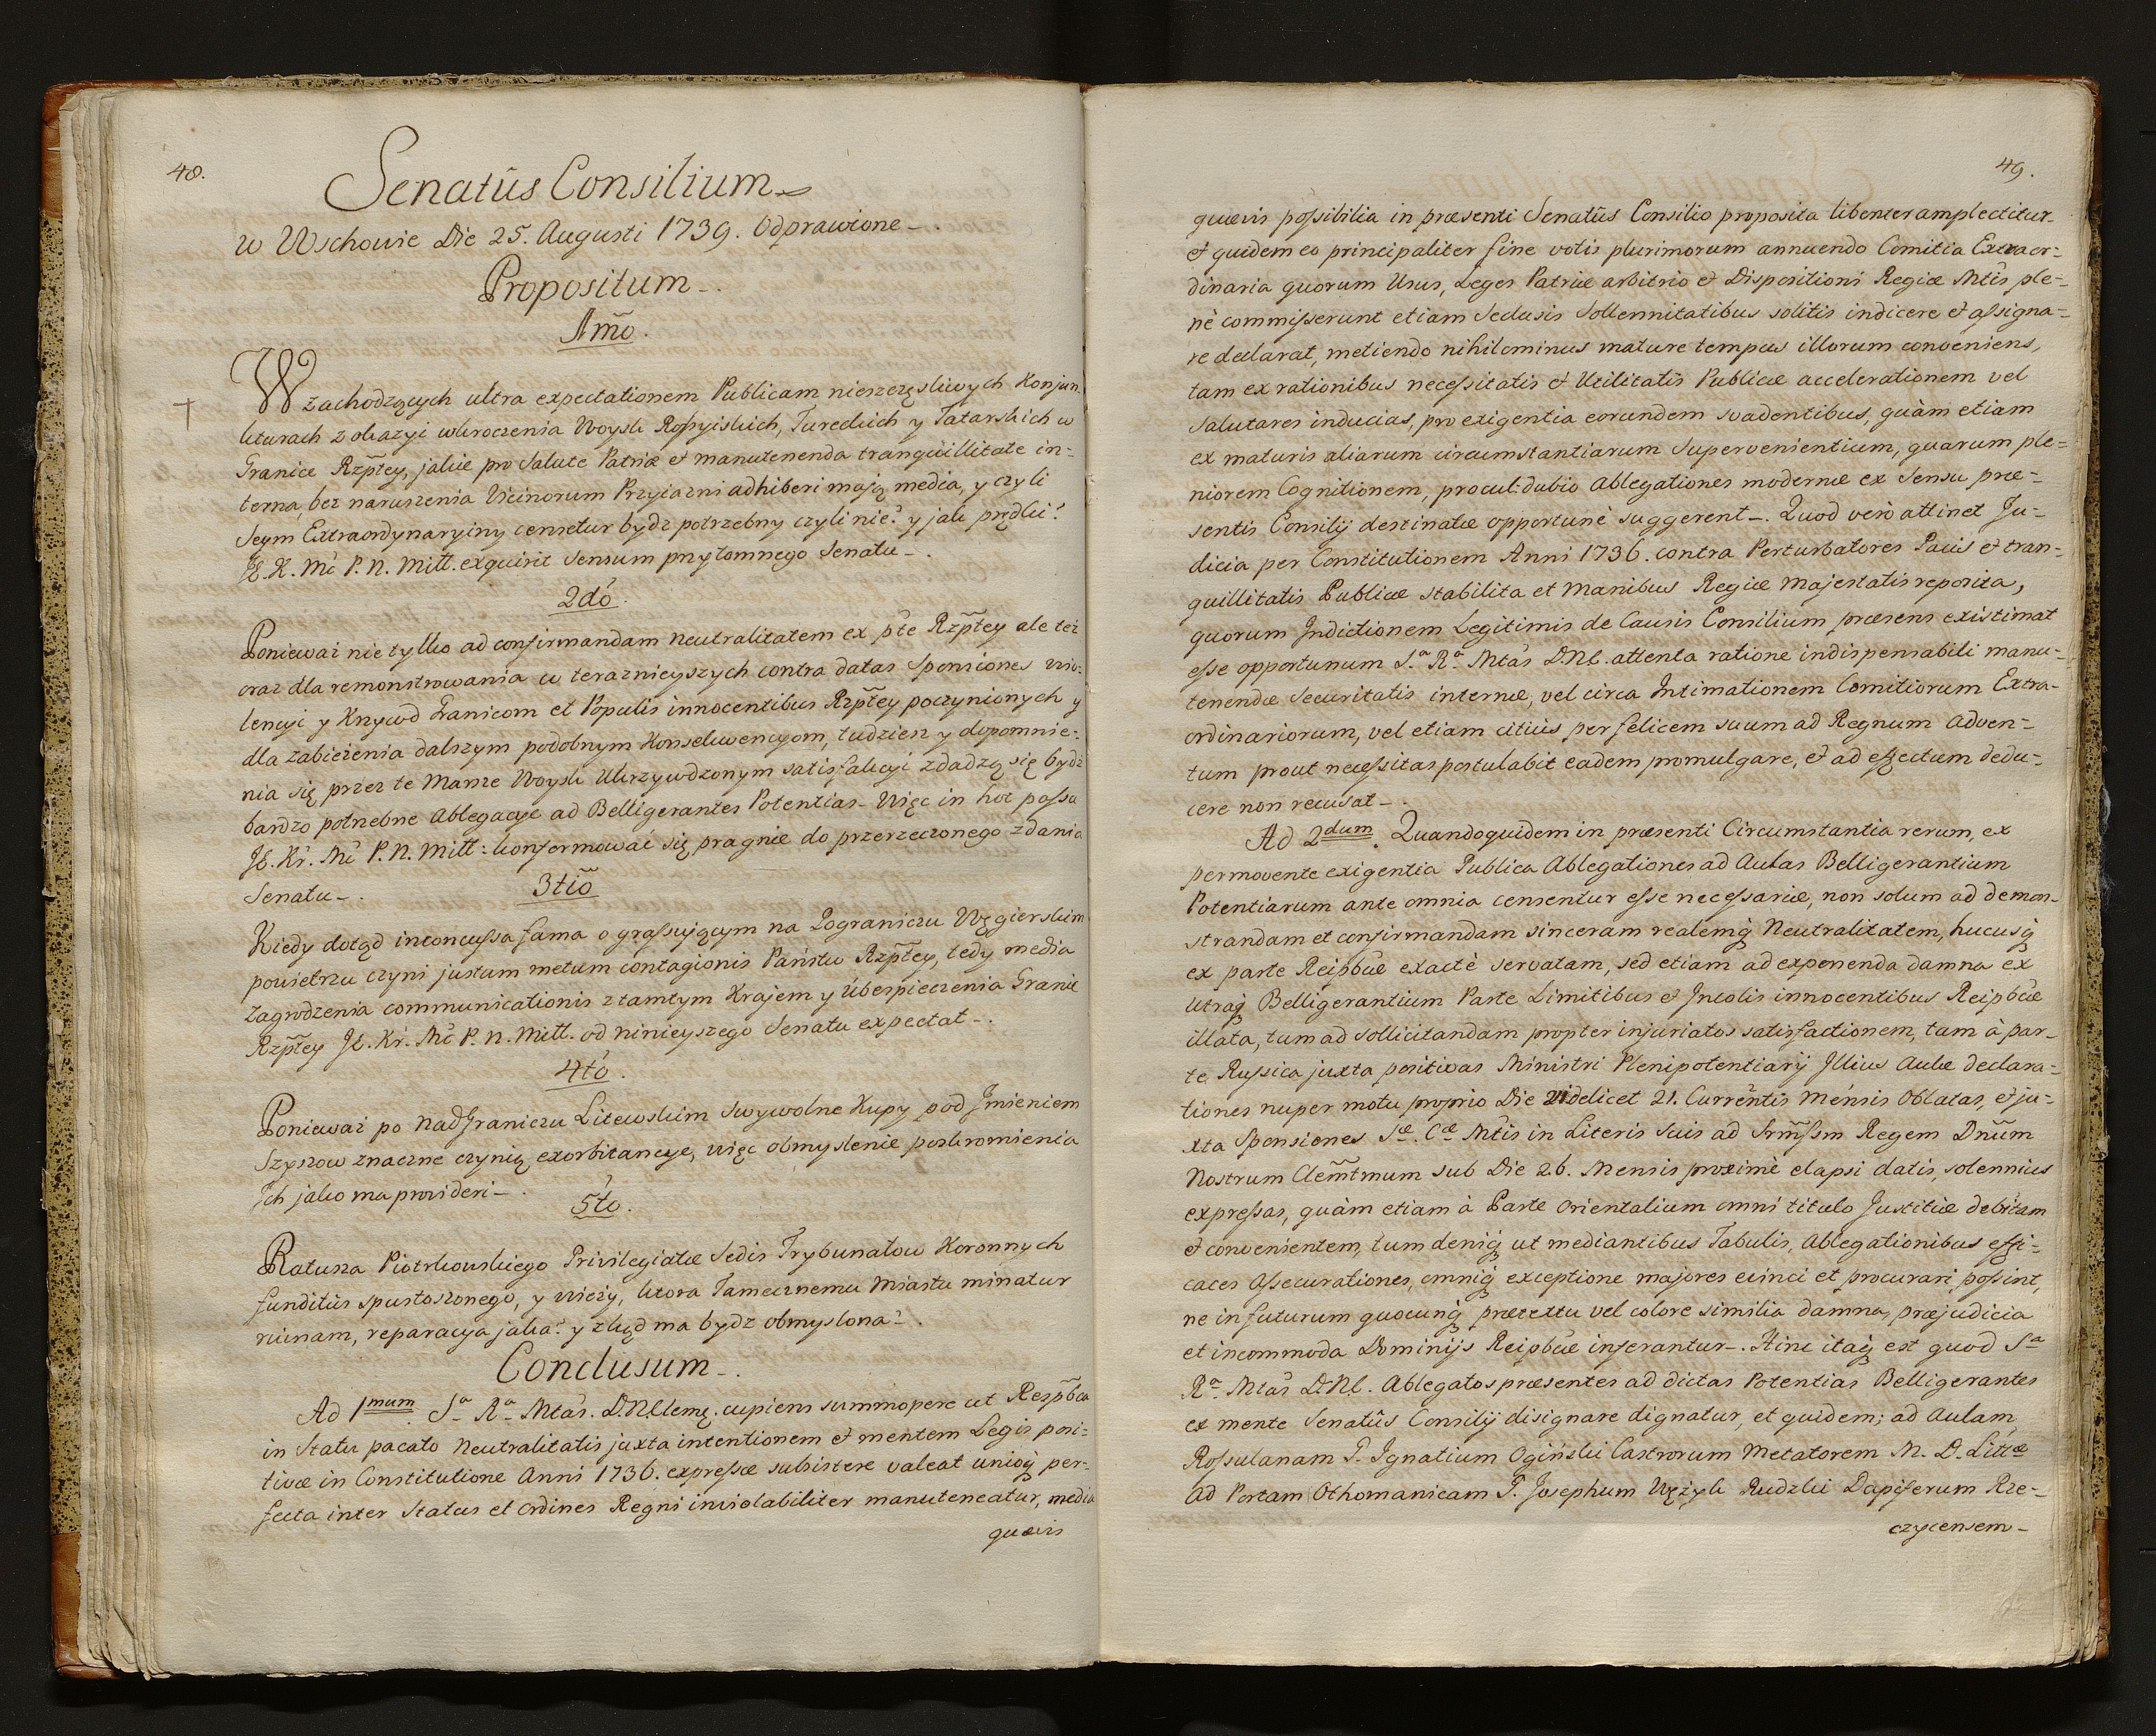 48.
Senatûs Consilium
w Wschowie Die 25. Augusti 1739. Odprawione
Propositum
1mo.
W zachodzących ultra expectationem Publicam nieszczęsliwych Konjun
kturach z okazyi wkroczenia Woysk Rossyiskich, Tureckich y Tatarskich w
Granice Rzptey, jakie pro Salute Patriæ et manutenenda tranquillitate in=
terna, bez naruszenia Vicinorum Przyiazni adhiberi mają media, y czyli
Seym Extraordynaryiny censetur bydz potrzebny czyli nie? y jak prędki?
JE. K. Mć P. N. Mitt. exquirit Sensum przytomnego Senatu.
2dó.
Poniewaz nie tylko ad confirmandam neutralitatem ex pte Rzptey ale tez
oraz dla remonstrowania w teraznieyszych contra datas Sponsiones vio=
lencyi y Krzywd Granicom et Populis innocentibus Rzptey poczynionych y
dla zabieżenia dalszym podobnym Konsekwencyom, tudziesz y dopomnie=
nia się przez te Marsze Woysk Ukrzywdzonym satisfakcyi zdadzą się bydz
bardzo potrzebne Ablegacye ad Belligerantes Potentias. Więc in hoc passu
JE. Kr. Mć P. N. Mitt: konformować się pragnie do przerzeczonego zdania
Senatu.
3tiō
Kiedy dotąd inconcussa fama o grassującym na Pograniczu Węgierskim
powietrzu czyni justum metum contagionis Państw Rzptey, tedy media
zagrodzenia communicationis z tamtym Krajem y Ubespieczenia Granic
Rzptey JE. Kr. Mć P. N. Mitt. od ninieyszego Senatu expectat.
4tó.
Poniewaz po nadGraniczu Litewskim Swywolne Kupy pod Jmieniem
Szyszow znaczne czynią exorbitancye, więc obmyslenie poskromienia
Jch jako ma provideri.
5tó.
Ratusza Piotrkowskiego Privilegiatæ Sedis Trybunałow Koronnych
funditûs spustoszonego, y Wieży, ktora Tamecznemu Miastu minatur
ruinam, reparacya jaka? y zkąd ma bydz obmyslona?
Conclusum.
Ad 1mum Sa Ra Mtas. D.N.Clemę. cupiens summopere ut Respbca
in Statu pacato Neutralitatis juxta intentionem et mentem Legis posi=
tivæ in Constitutione Anni 1736. expressæ subsistere valeat unioq per=
fecta inter Status et Ordines Regni inviolabiliter manuteneatur, media
quævis
49.
quævis possibilia in præsenti Senatûs Consilio proposita libenter amplectitur
et quidem eo principaliter fine votis plurimorum annuendo Comitia Extraor=
dinaria quorum Usus, Leges Patriæ arbitrio et Dispositioni Regiæ Mtis ple=
nè commisserunt etiam Seclusis Sollennitatibus solitis indicere et assigna=
re declarat, metiendo nihilominus mature tempus illorum conveniens,
tam ex rationibus necessitatis et Utilitatis Publicæ accelerationem vel
Salutares inducias, pro exigentia eorundem svadentibus, quàm etiam
ex maturis aliarum circumstantiarum Supervenientium, quarum ple=
niorem Cognitionem, procul: dubio Ablegationes modernæ ex Sensu præ=
sentis Consilij destinatæ opportunè suggerent. Quod verò attinet Ju=
dicia per Constitutionem Anni 1736. contra Perturbatores Pacis et tran=
quillitatis Publicæ stabilita et Manibus Regiæ Majestatis reposita,
quorum Indictionem Legitimis de Causis Consilium præsens existimat
esse opportunum S.a R.a Mtas D.N.C. attenta ratione indispensabili manu=
tenendæ Securitatis internæ, vel circa Intimationem Comitiorum Extra=
ordinariorum, vel etiam citiùs per felicem suum ad Regnum adven=
tum prout necessitas postulabit eadem promulgare, et ad effectum dedu=
cere non recusat.
Ad 2dum. Quandoquidem in præsenti Circumstantia rerum, ex
permovente exigentia Publica Ablegationes ad Aulas Belligerantium
Potentiarum ante omnia censentur esse necessariæ, non solum ad demon=
strandam et confirmandam sinceram realemq Neutralitatem, hucusq
ex parte Reipbcæ exactè servatam, sed etiam ad exponenda damna ex
utraq Belligerantium Parte Limitibus et Incolis innocentibus Reipbcæ
illata, tum ad sollicitandam propter injuriatos satisfactionem, tam à par=
te Russica juxta positivas Ministri Plenipotentiarij Illius Aulæ declara=
tiones nuper motu proprio Die videlicet 21. Currentis mensis Oblatas, et ju=
xta Sponsiones Sæ. Cæ Mtis in Literis Suis ad Srmssm Regem Dnum
Nostrum Clemtmum sub Die 26. Mensis proximè elapsi datis, solennius
expressas, quàm etiam à Parte Orientalium omni titulo Justitiæ debitam
et convenientem, tum deniq ut mediantibus Tabulis, Ablegationibus effi=
caces Assecurationes, omniq exceptione majores evinci et procurari possint,
ne in futurum quocunq prætextu vel colore similia damna, præjudicia
et incommoda Dominijs Reipbcæ inferantur. Hinc itaq est quod Sa
Ra Mtas D.N.C. Ablegatos præsentes ad dictas Potentias Belligerantes
ex mente Senatûs Consilij disignare dignatur, et quidem; ad Aulam
Rossulanam P. Ignatium Ogiński Castrorum Metatorem M. D. Littæ
ad Portam Othomanicam P. Josephum Wężyk Rudzki Dapiferum Rze=
czycensem